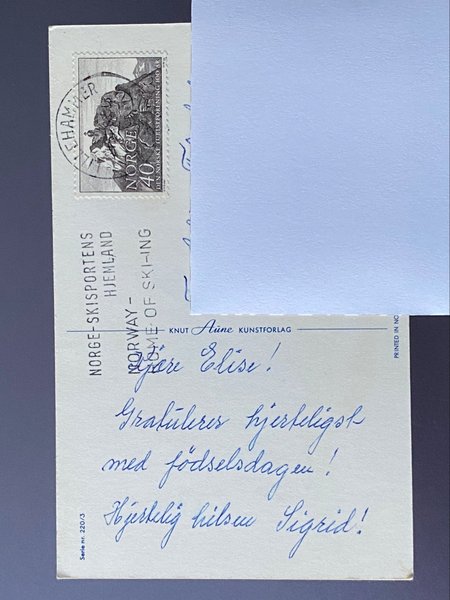 LILLEHAMMER
NORGE 40
DEN NORSKE TURISTFORENING 100 ÅR
NORGE-SKISPORTENS
HJEMLAND
NORWAY-
HOME OF SKI-ING
KNUT Aune KUNSTFORLAG
PRINTED IN NO
Kjære Elise!
Gratulerer hjerteligst
med födselsdagen!
Hjertelig hilsen Sigrid!
Serie nr. 220/3